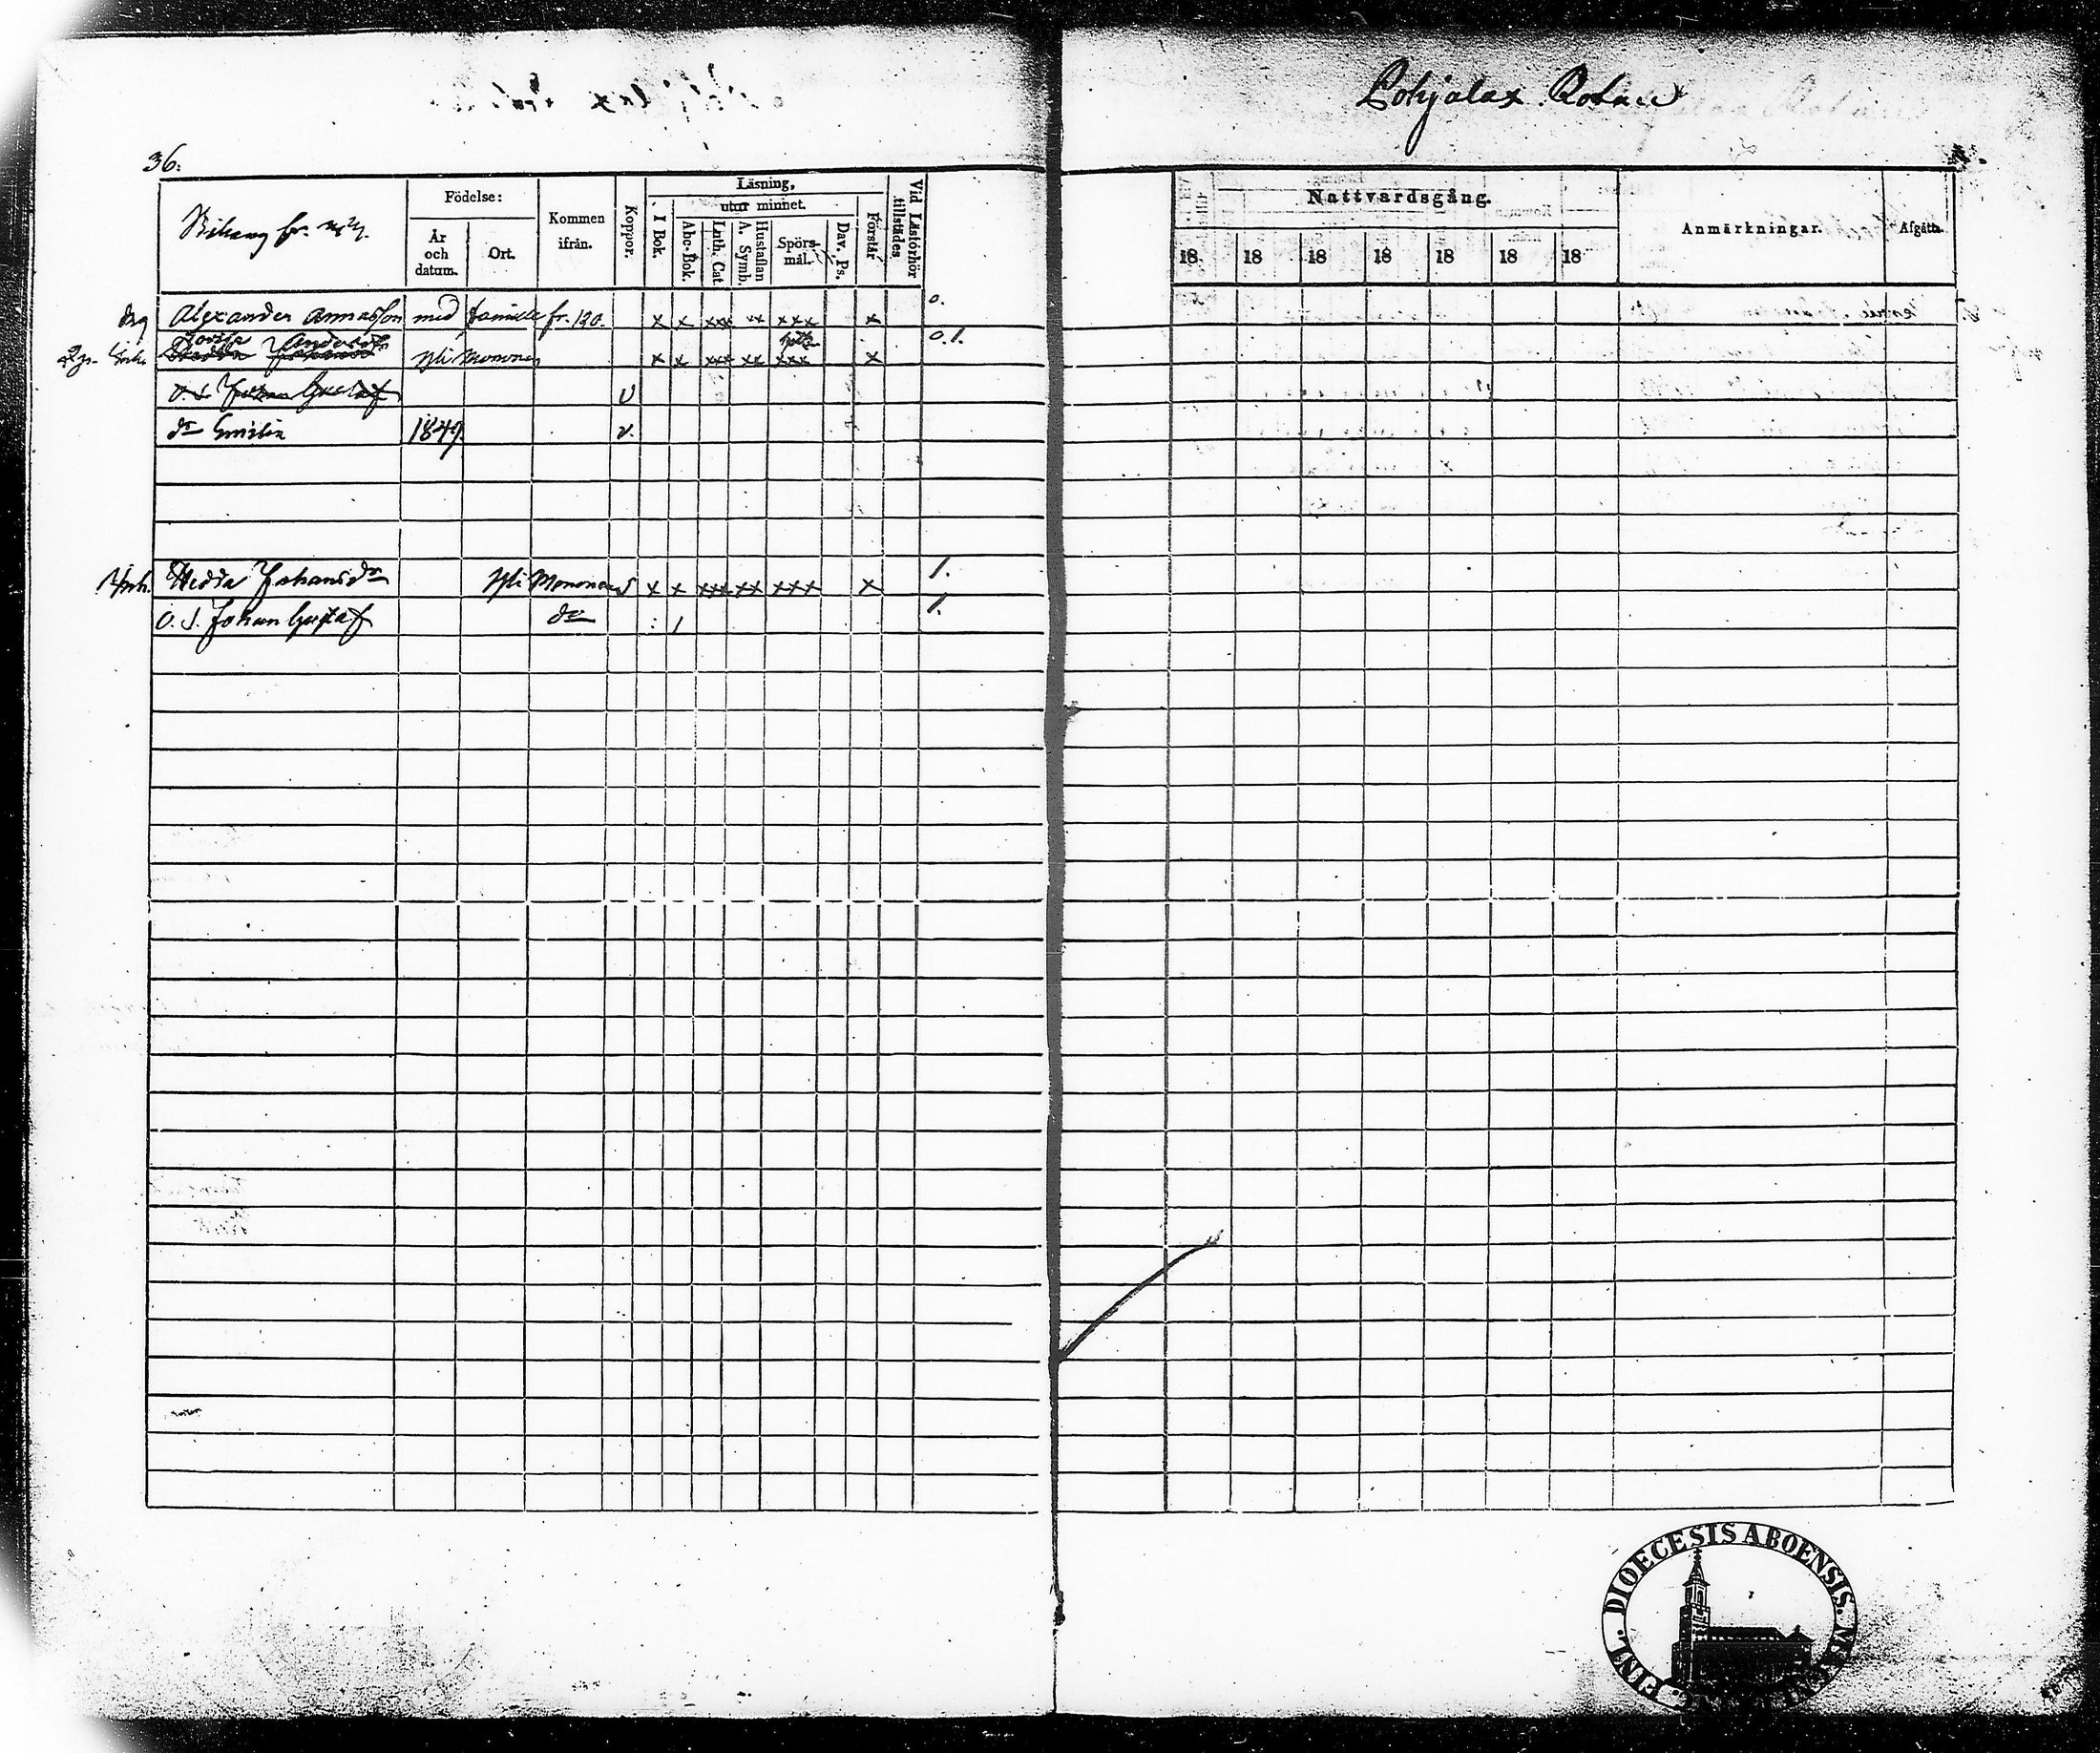 Pohjalax Rotan
36.
Bihang fr.
Födelse:
År och datum.
Ort.
Kommen ifrån.
Koppor.
Läsning,
I Bok.
utur minnet.
Abc-Bok.
Luth. Cat.
A. Symb.
Hustaflan
Spörsmål.
Dav. Ps.
Förstår
Vid Läsförhör tillstädes
Nattvardsgång.
18 18 18 18 18 18 18
Anmärkningar.
Afgått.
Drg Alexander Annasson med familie fr. 120. x x xxx xx xxx x 0.
Lovisa Andersdr
Hedda Johansdr Yli Mononen x x xxx xx xxx x 0.1.
o. S. Johan Gustaf v
dr Emilia 1849. v.
Hedda Johansdr Yli Mononen v x x xxx xx xxx x 1.
o. S. Johan Gustaf do : 1 1.
DIOECESIS ABOENSIS.
FINL.